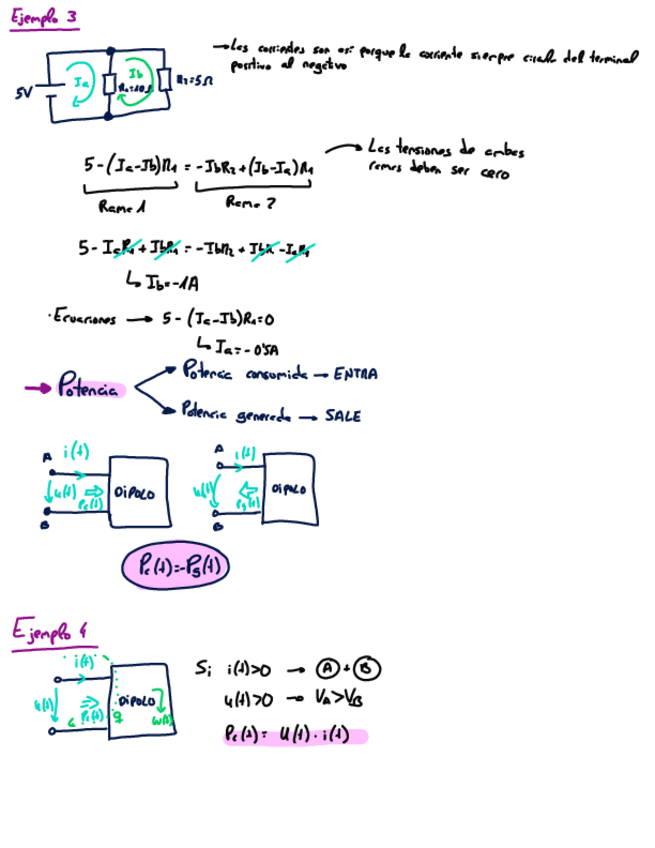 Ejemplo 3
→ Las corrientes son así porque la corriente siempre circula del terminal
positivo al negativo
5V
Ia
R1=10Ω
Ib
R2=5Ω
5-(Ia-Ib)R1 = -IbR2+(Ib-Ia)R1
→ Las tensiones de ambas
ramas deben ser cero
Rama 1
Rama 2
5-IaR1+IbR1 = -IbR2+IbR-IaR1
↳ Ib=-1A
·Ecuaciones → 5-(Ia-Ib)R1=0
↳ Ia=-0'5A
→ Potencia
Potencia consumida → ENTRA
Potencia generada → SALE
A i(t)
u(t) ⇒ Pc(t)
B
DIPOLO
A i(t)
u(t) ⇐ Pg(t)
B
DIPOLO
Pc(t)=-Pg(t)
Ejemplo 4
i(t)
u(t) ⇒ Pc(t)
q
DIPOLO
w(t)
Si i(t)>0 → A + B
u(t)>0 → VA>VB
Pc(t)= u(t)·i(t)